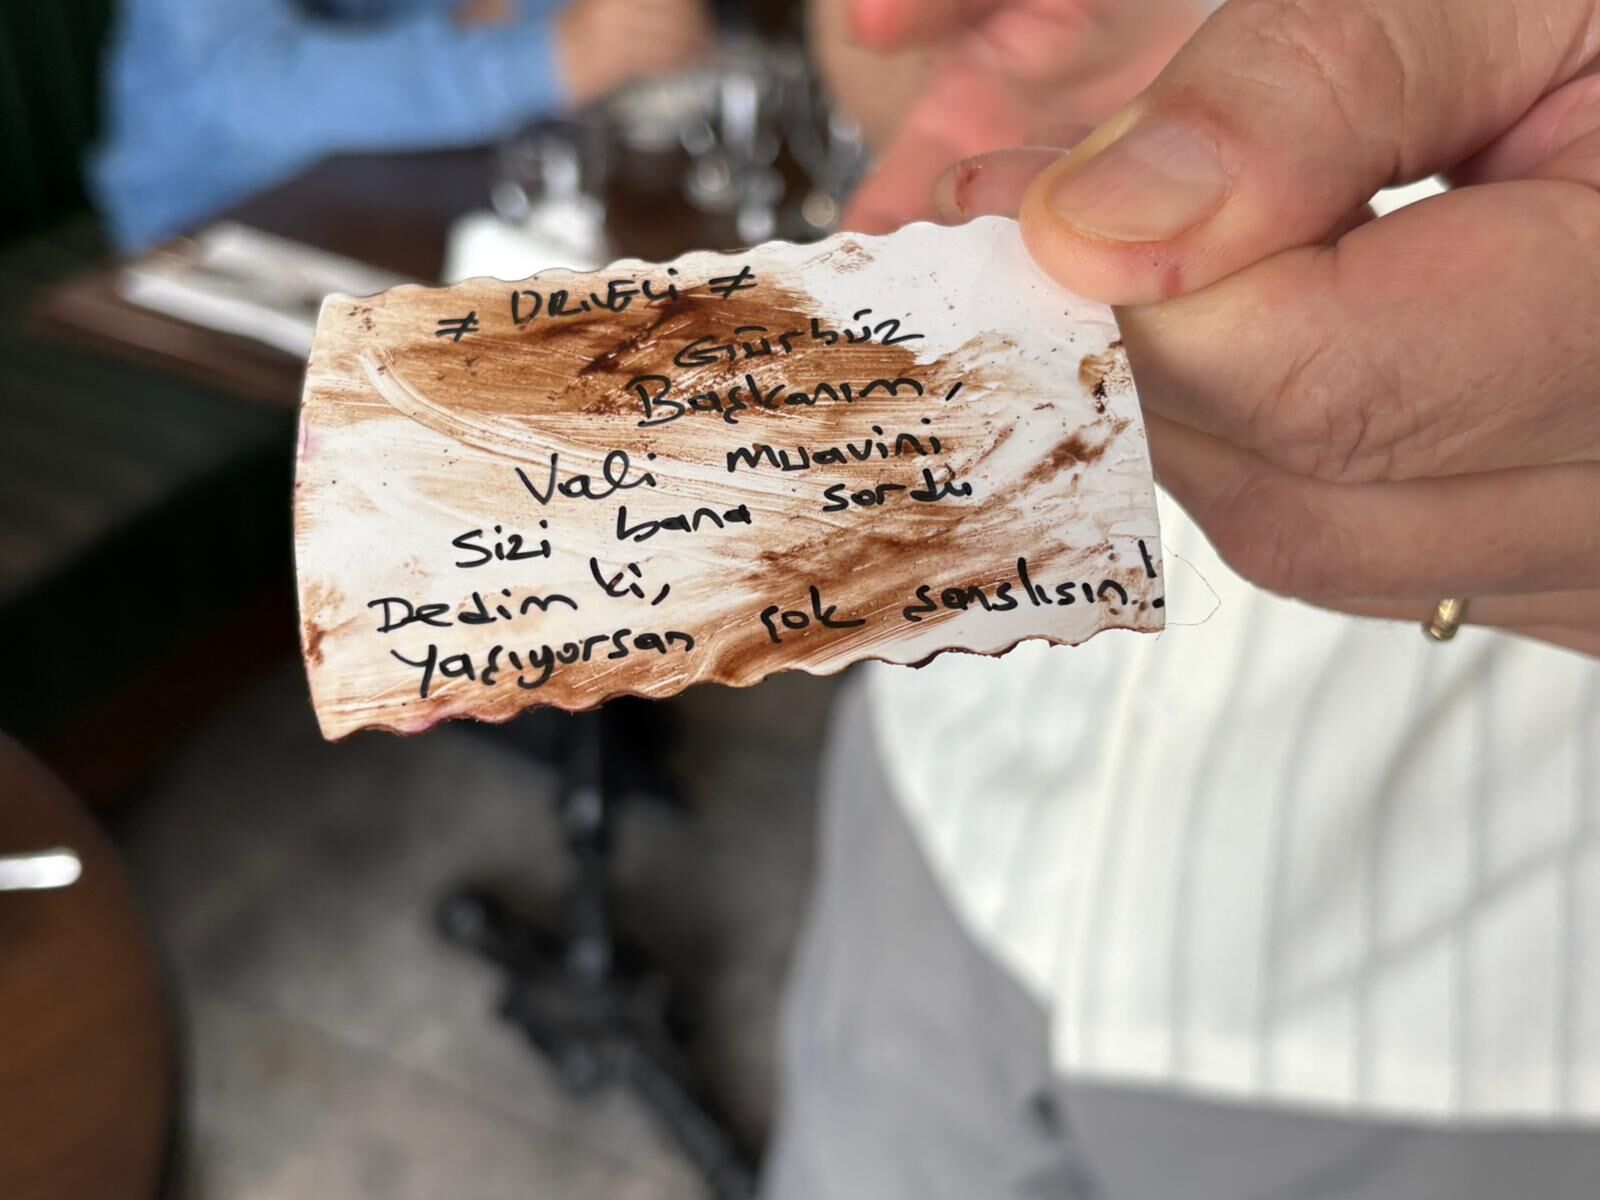 ≠ DRNELİ ≠
Gürbüz
Başkanım,
Vali muavini
Sizi bana sordu
Dedim ki,
Yaşıyorsan çok şanslısın..!